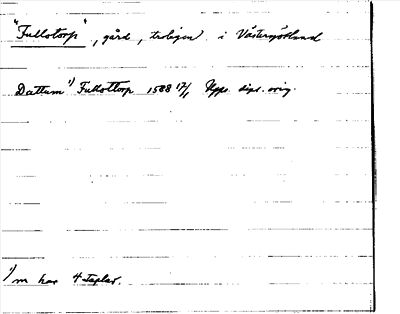 "Fullotorp", gård, troligen i Västergötland
Dattum¹⁾ Fullottorp 1588 17/1 Upps. dipl. orig.
¹⁾ m har 4 staplar.